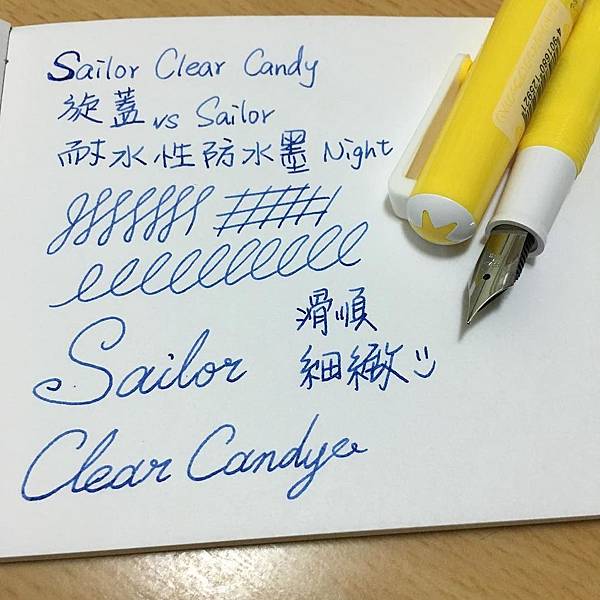 Sailor Clear Candy
旋蓋 vs Sailor
耐水性防水墨 Night
Sailor
滑順
細緻
Clear Candy